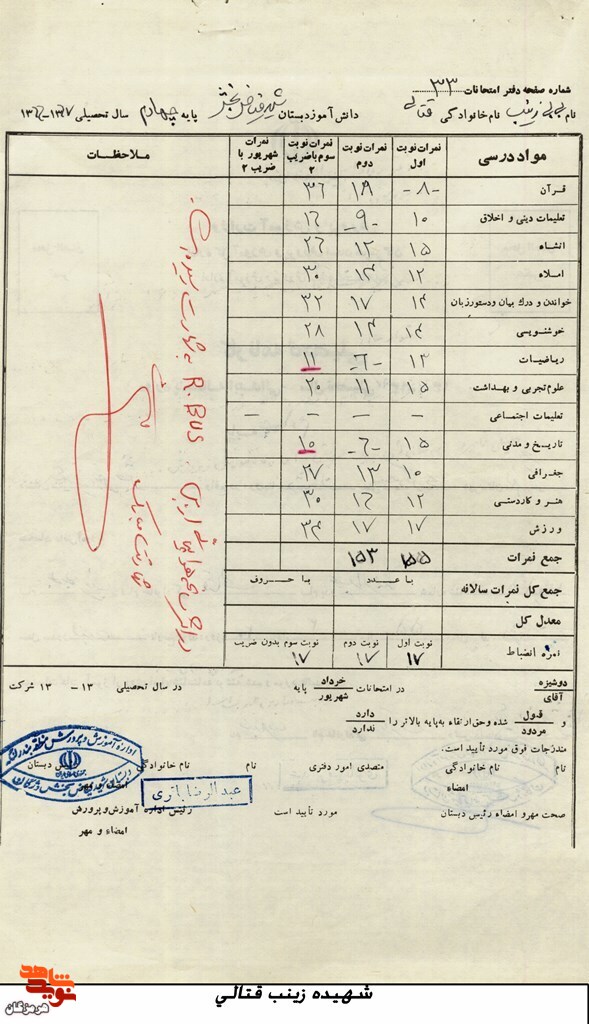 شماره صفحه دفتر امتحانات ۳۳
نام بی بی زینب نام خانوادگی قتالی دانش آموز دبستان پایه چهارم سال تحصیلی
مواد درسی نمرات نوبت اول نمرات نوبت دوم نمرات نوبت سوم با ضریب ۲ نمرات شهریور با ضریب ۲ ملاحظات
قرآن -۸- ۱۸ ۳۶
تعلیمات دینی و اخلاق ۱۰ -۹- ۱۶
انشاء ۱۵ ۱۲ ۲۶
املاء ۱۲ ۱۴ ۳۰
خواندن و درک بیان و دستور زبان ۱۴ ۱۷ ۳۲
خوشنویسی ۱۴ ۱۴ ۲۸
ریاضیات ۱۳ -۶- ۱۱
علوم تجربی و بهداشت ۱۵ ۱۱ ۲۰
تعلیمات اجتماعی - - - -
تاریخ و مدنی ۱۵ -۶- ۱۰
جغرافی ۱۰ ۱۳ ۲۷
هنر و کاردستی ۱۲ ۱۶ ۳۰
ورزش ۱۷ ۱۷ ۳۴
جمع نمرات ۱۵۵ ۱۵۳
جمع کل نمرات سالانه با عدد با حروف
معدل کل
نمره انضباط نوبت اول ۱۷ نوبت دوم ۱۷ نوبت سوم بدون ضریب ۱۷
در اثر سانحه هوایی ایرباس R.BUS به شهادت رسیده است.
دوشیزه آقای در امتحانات خرداد شهریور پایه در سال تحصیلی ۱۳ - ۱۳ شرکت
و قبول مردود شده و حق ارتقاء به پایه بالاتر را دارد ندارد
مندرجات فوق مورد تأیید است.
نام نام خانوادگی متصدی امور دفتری نام نام خانوادگی رئیس دبستان
امضاء امضاء و مهر
عبدالرضا باتری
صحت مهر و امضاء رئیس دبستان مورد تأیید است رئیس اداره آموزش و پرورش
امضاء و مهر
شاهد
نوید
هرمزگان
شهیده زینب قتالي